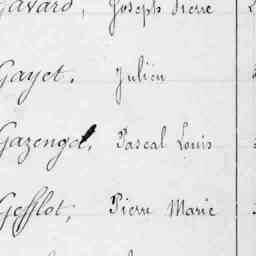 Gavard, Joseph Pierre
Gayet. Julien
Gazengel, Pascal Louis
Gefflot, Pierre Marie